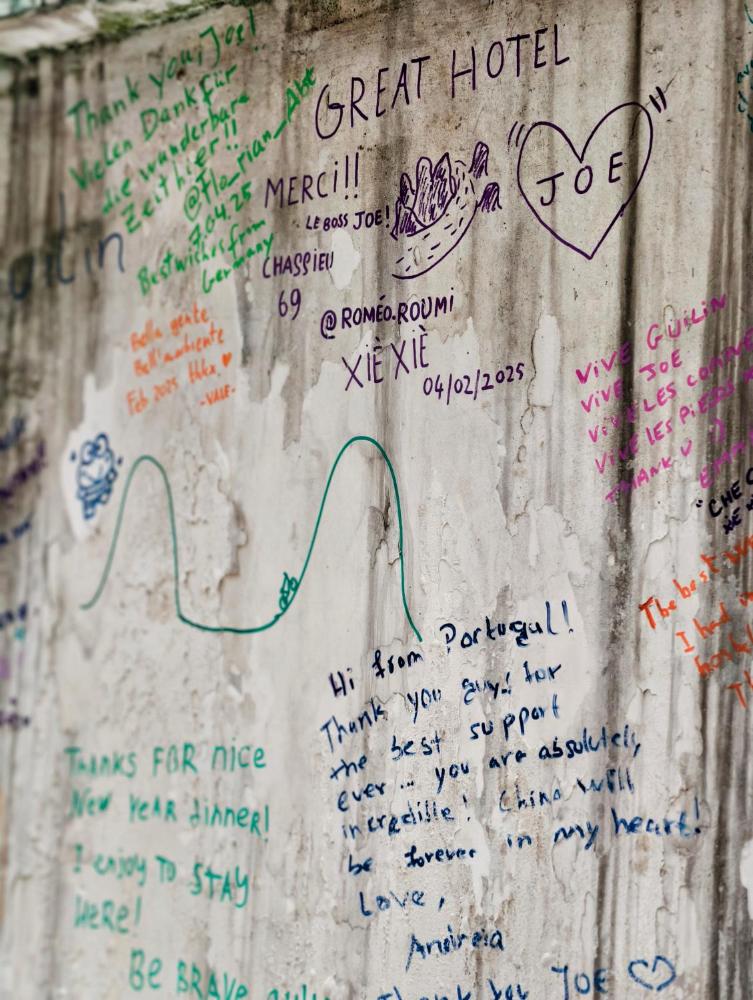 Thank you, Joe!
Vielen Dank für
die wunderbare
Zeit hier!!
@flo_rian_Abt
7.04.25
Best wishes from
Germany
uilin
GREAT HOTEL
MERCi!!
LE BOSS JOE!
CHASSIEU
69
@ROMÉO.ROUMi
XIÈ XIÈ
04/02/2025
JOE
Bella gente
Bell'ambiente
Feb 2025 thkx,
-VALE-
ViVE GUiLiN
ViVE JOE
ViVE LES
ViVE LES PiEDS
THANK U :)
The best
I had
Hi from Portugal!!
Thank you guys! for
the best support
ever ... you are absolutely
incredille! China will
be forever in my heart!
Love,
Andreia
THANKS FOR nice
New YEAR dinner!
I enjoy TO STAY
HeRe!
Be BRAVE
Thank You JOE